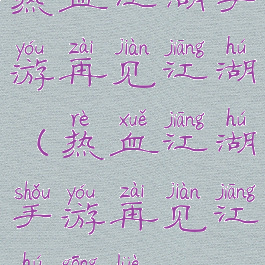 热血江湖手
yóu zài jiàn jiāng hú
游再见江湖
rè xuě jiāng hú
（热血江湖
shǒu yóu zài jiàn jiāng
手游再见江
hú gōng lüè